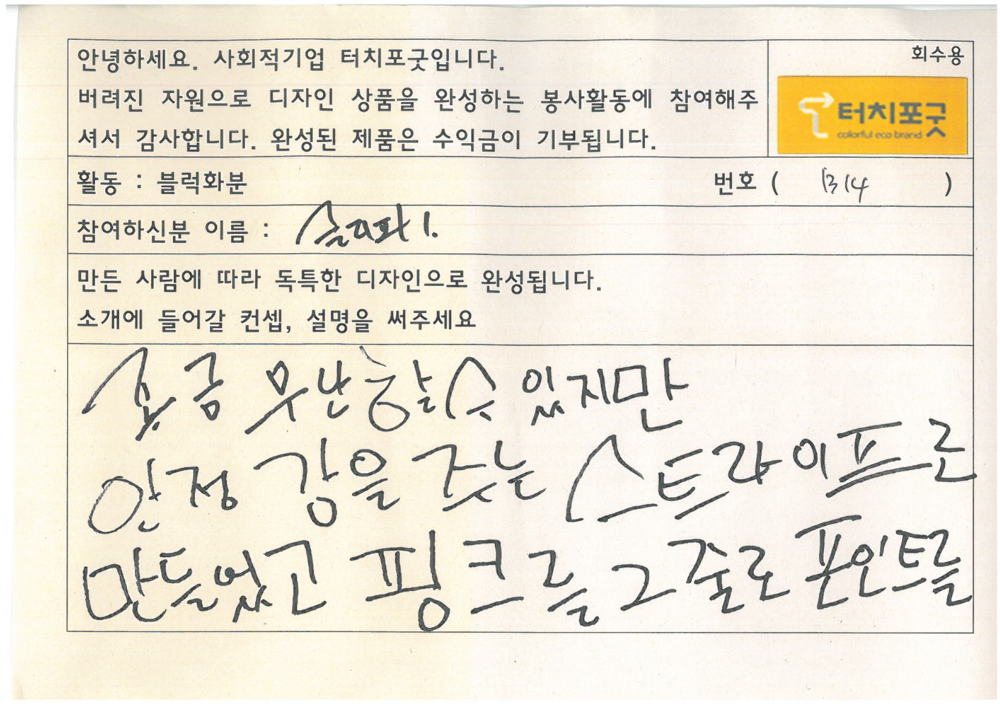 안녕하세요. 사회적기업 터치포굿입니다.
버려진 자원으로 디자인 상품을 완성하는 봉사활동에 참여해주
셔서 감사합니다. 완성된 제품은 수익금이 기부됩니다.
회수용
터치포굿
colorful eco brand
활동 : 블럭화분
번호 ( 1314 )
참여하신분 이름 :
만든 사람에 따라 독특한 디자인으로 완성됩니다.
소개에 들어갈 컨셉, 설명을 써주세요
조금 무난할 수 있지만
안정감을 주는 스트라이프로
만들었고 핑크를 그 줄로 포인트를